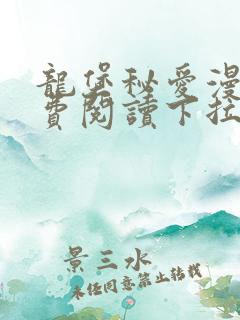 龍堡秘愛漫
費閱讀下拉
景三水
未經同意禁止转载